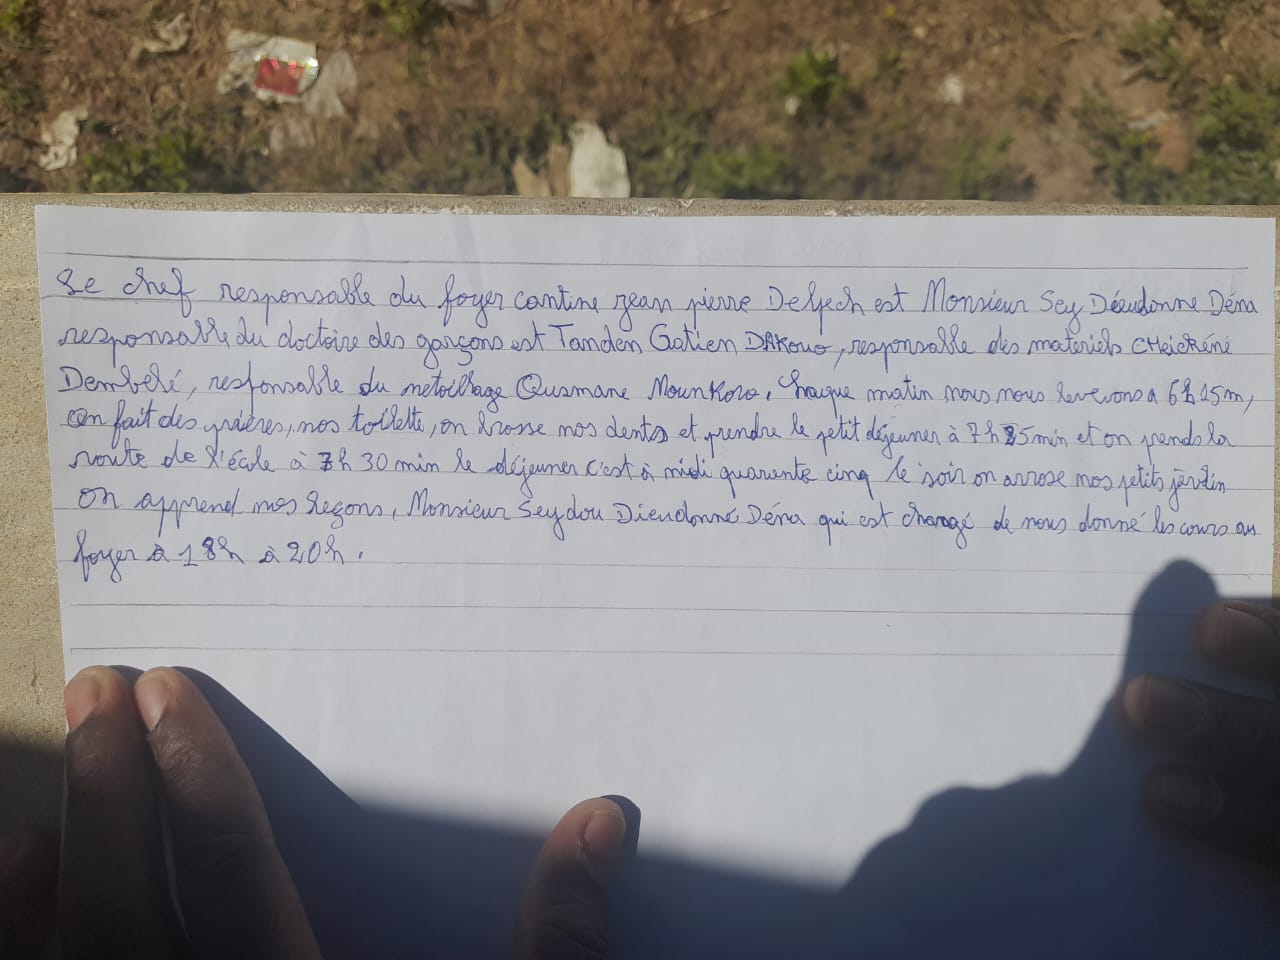 Le chef responsable du foyer cantine jean pierre Delpech est Monsieur Sey Dieudonne Déna
responsable du doctoire des garçons est Tanden Gatien DAKOUO, responsable des materiels CHeickéné
Dembélé, responsable du netoillage Ousmane Mounkoro. Chaque matin nous nous leverons a 6h 15m,
on fait des prières, nos toilette, on brosse nos dents et prendre le petit déjeuner à 7h 25min et on prends la
route de l'école à 7h 30 min le déjeuner c'est à midi quarente cinq le soir on arrose nos petits jardin
on apprend nos leçons, Monsieur Seydou Dieudonné Déna qui est changé de nous donné les cours au
foyer à 18h à 20h.